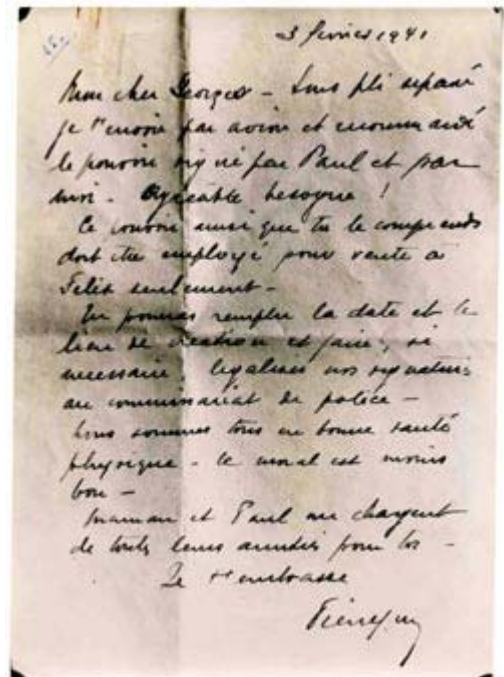 3 février 1941
Mon cher Georges - Sous pli séparé
je t'envoie par avion et recommandé
le pouvoir signé par Paul et par
moi - Agréable besogne !
Ce pouvoir ainsi que tu le comprends
doit être employé pour vente à
Félix seulement -
Tu pourras remplir la date et le
lieu de création et faire, si
nécessaire légaliser nos signatures
au commissariat de police -
Nous sommes tous en bonne santé
physique - le moral est moins
bon -
Maman et Paul me chargent
de toutes leurs amitiés pour toi -
Je t'embrasse